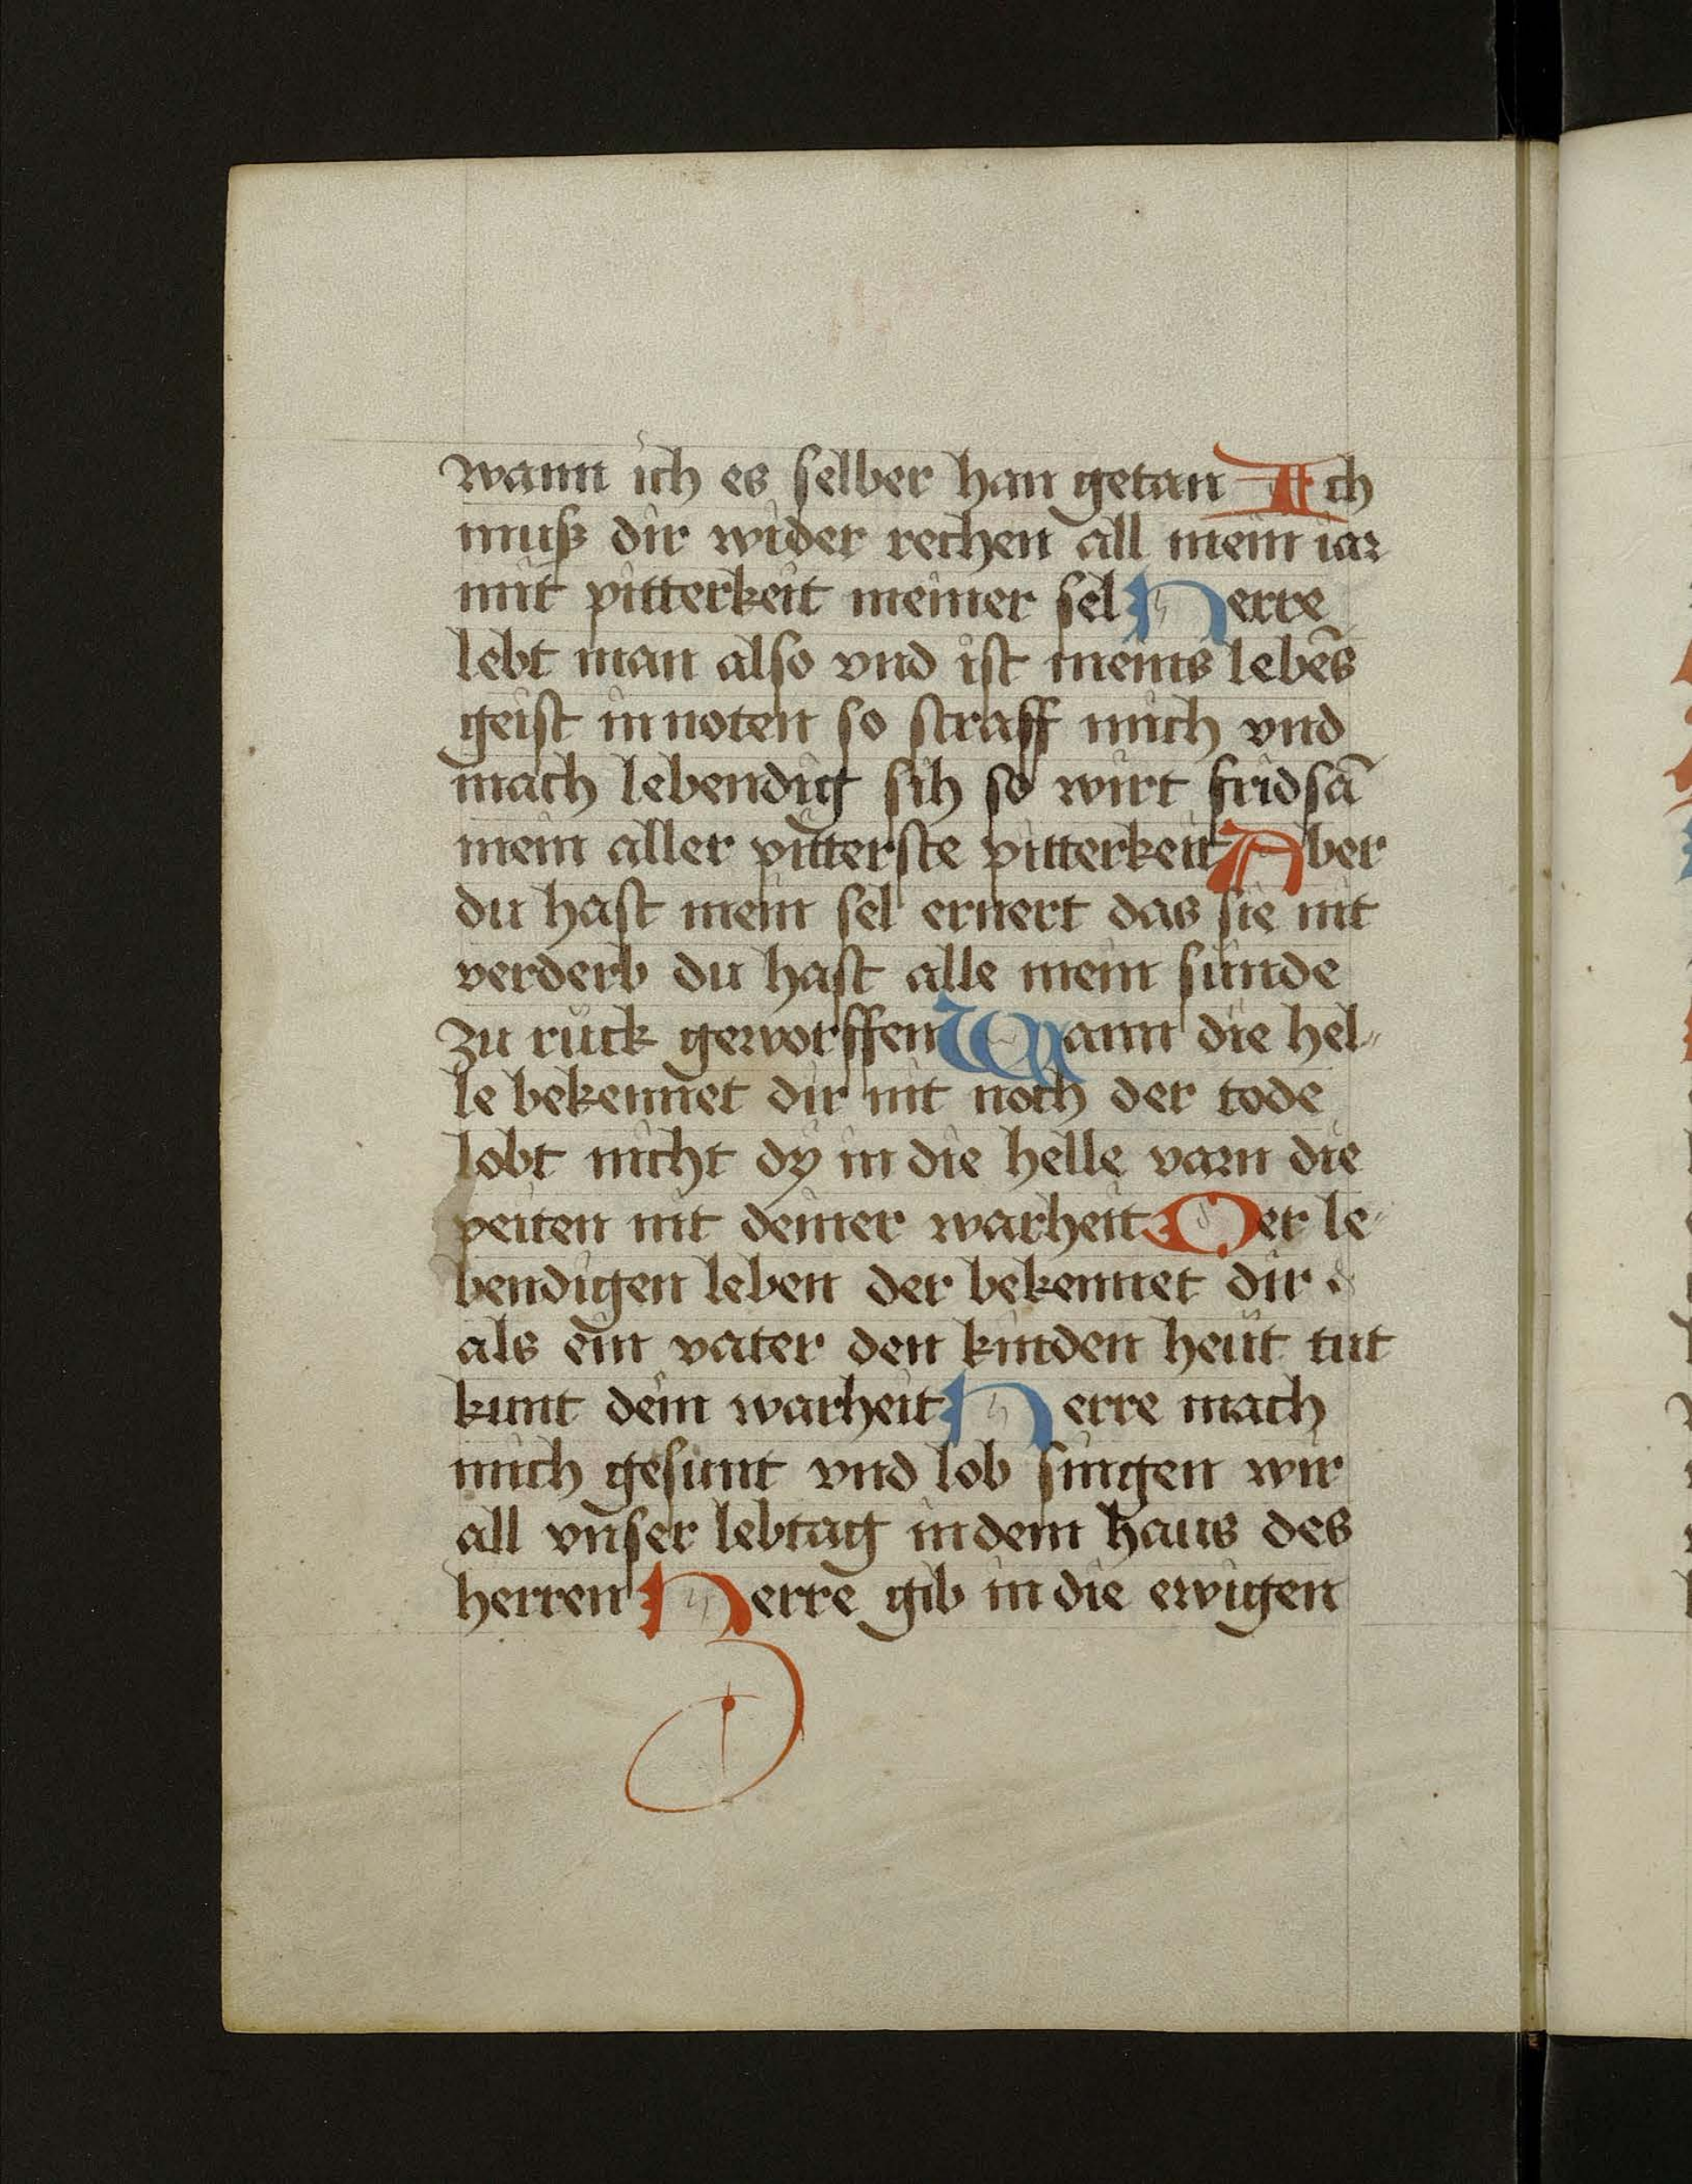 wann ich es selber han getan Ich
muß dir wider rechen all mein iar
mit pitterkeit meiner sel Herre
lebt man also vnd ist meins lebēs
geist in noten so straff mich vnd
mach lebendig sih so wirt fridsā
mein aller pitterste pitterkeit Aber
du hast mein sel ernert das sie nit
verderb du hast alle mein sünde
zu rück geworffen Wann die hel-
le bekennet dir nit noch der tode
lobt nicht dy in die helle varn die
peiten nit deiner warheit Der le-
bendigen leben der bekennet dir
als ein vater den kinden heüt tut
kunt dein warheit Herre mach
mich gesunt vnd lob singen wir
all vnser lebtag in dem haus des
herren Herre gib in die ewigen